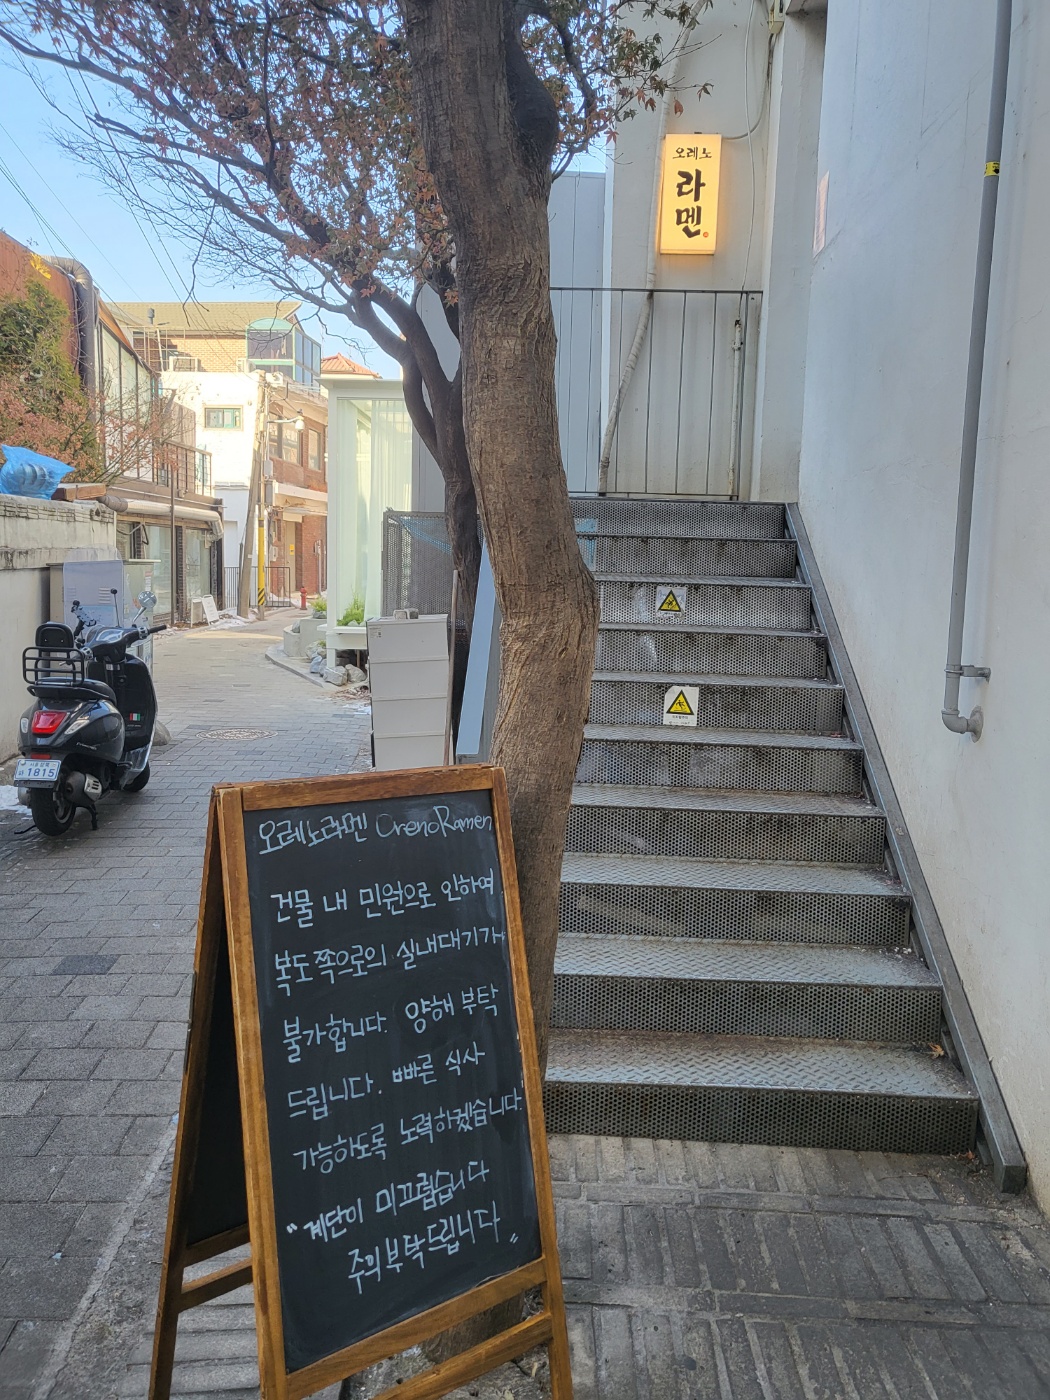 오레노
라
멘
1815
오레노라멘 OrenoRamen
건물 내 민원으로 인하여
복도쪽으로의 실내대기가
불가합니다. 양해 부탁
드립니다. 빠른 식사
가능하도록 노력하겠습니다.
"계단이 미끄럽습니다
주의부탁드립니다"